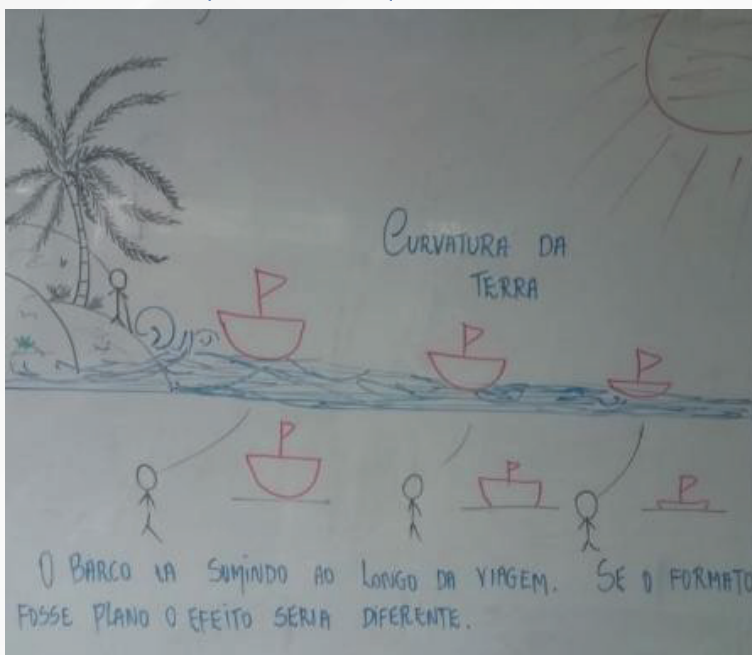 CURVATURA DA
TERRA
O BARCO IA SUMINDO AO LONGO DA VIAGEM. SE O FORMATO
FOSSE PLANO O EFEITO SERIA DIFERENTE.